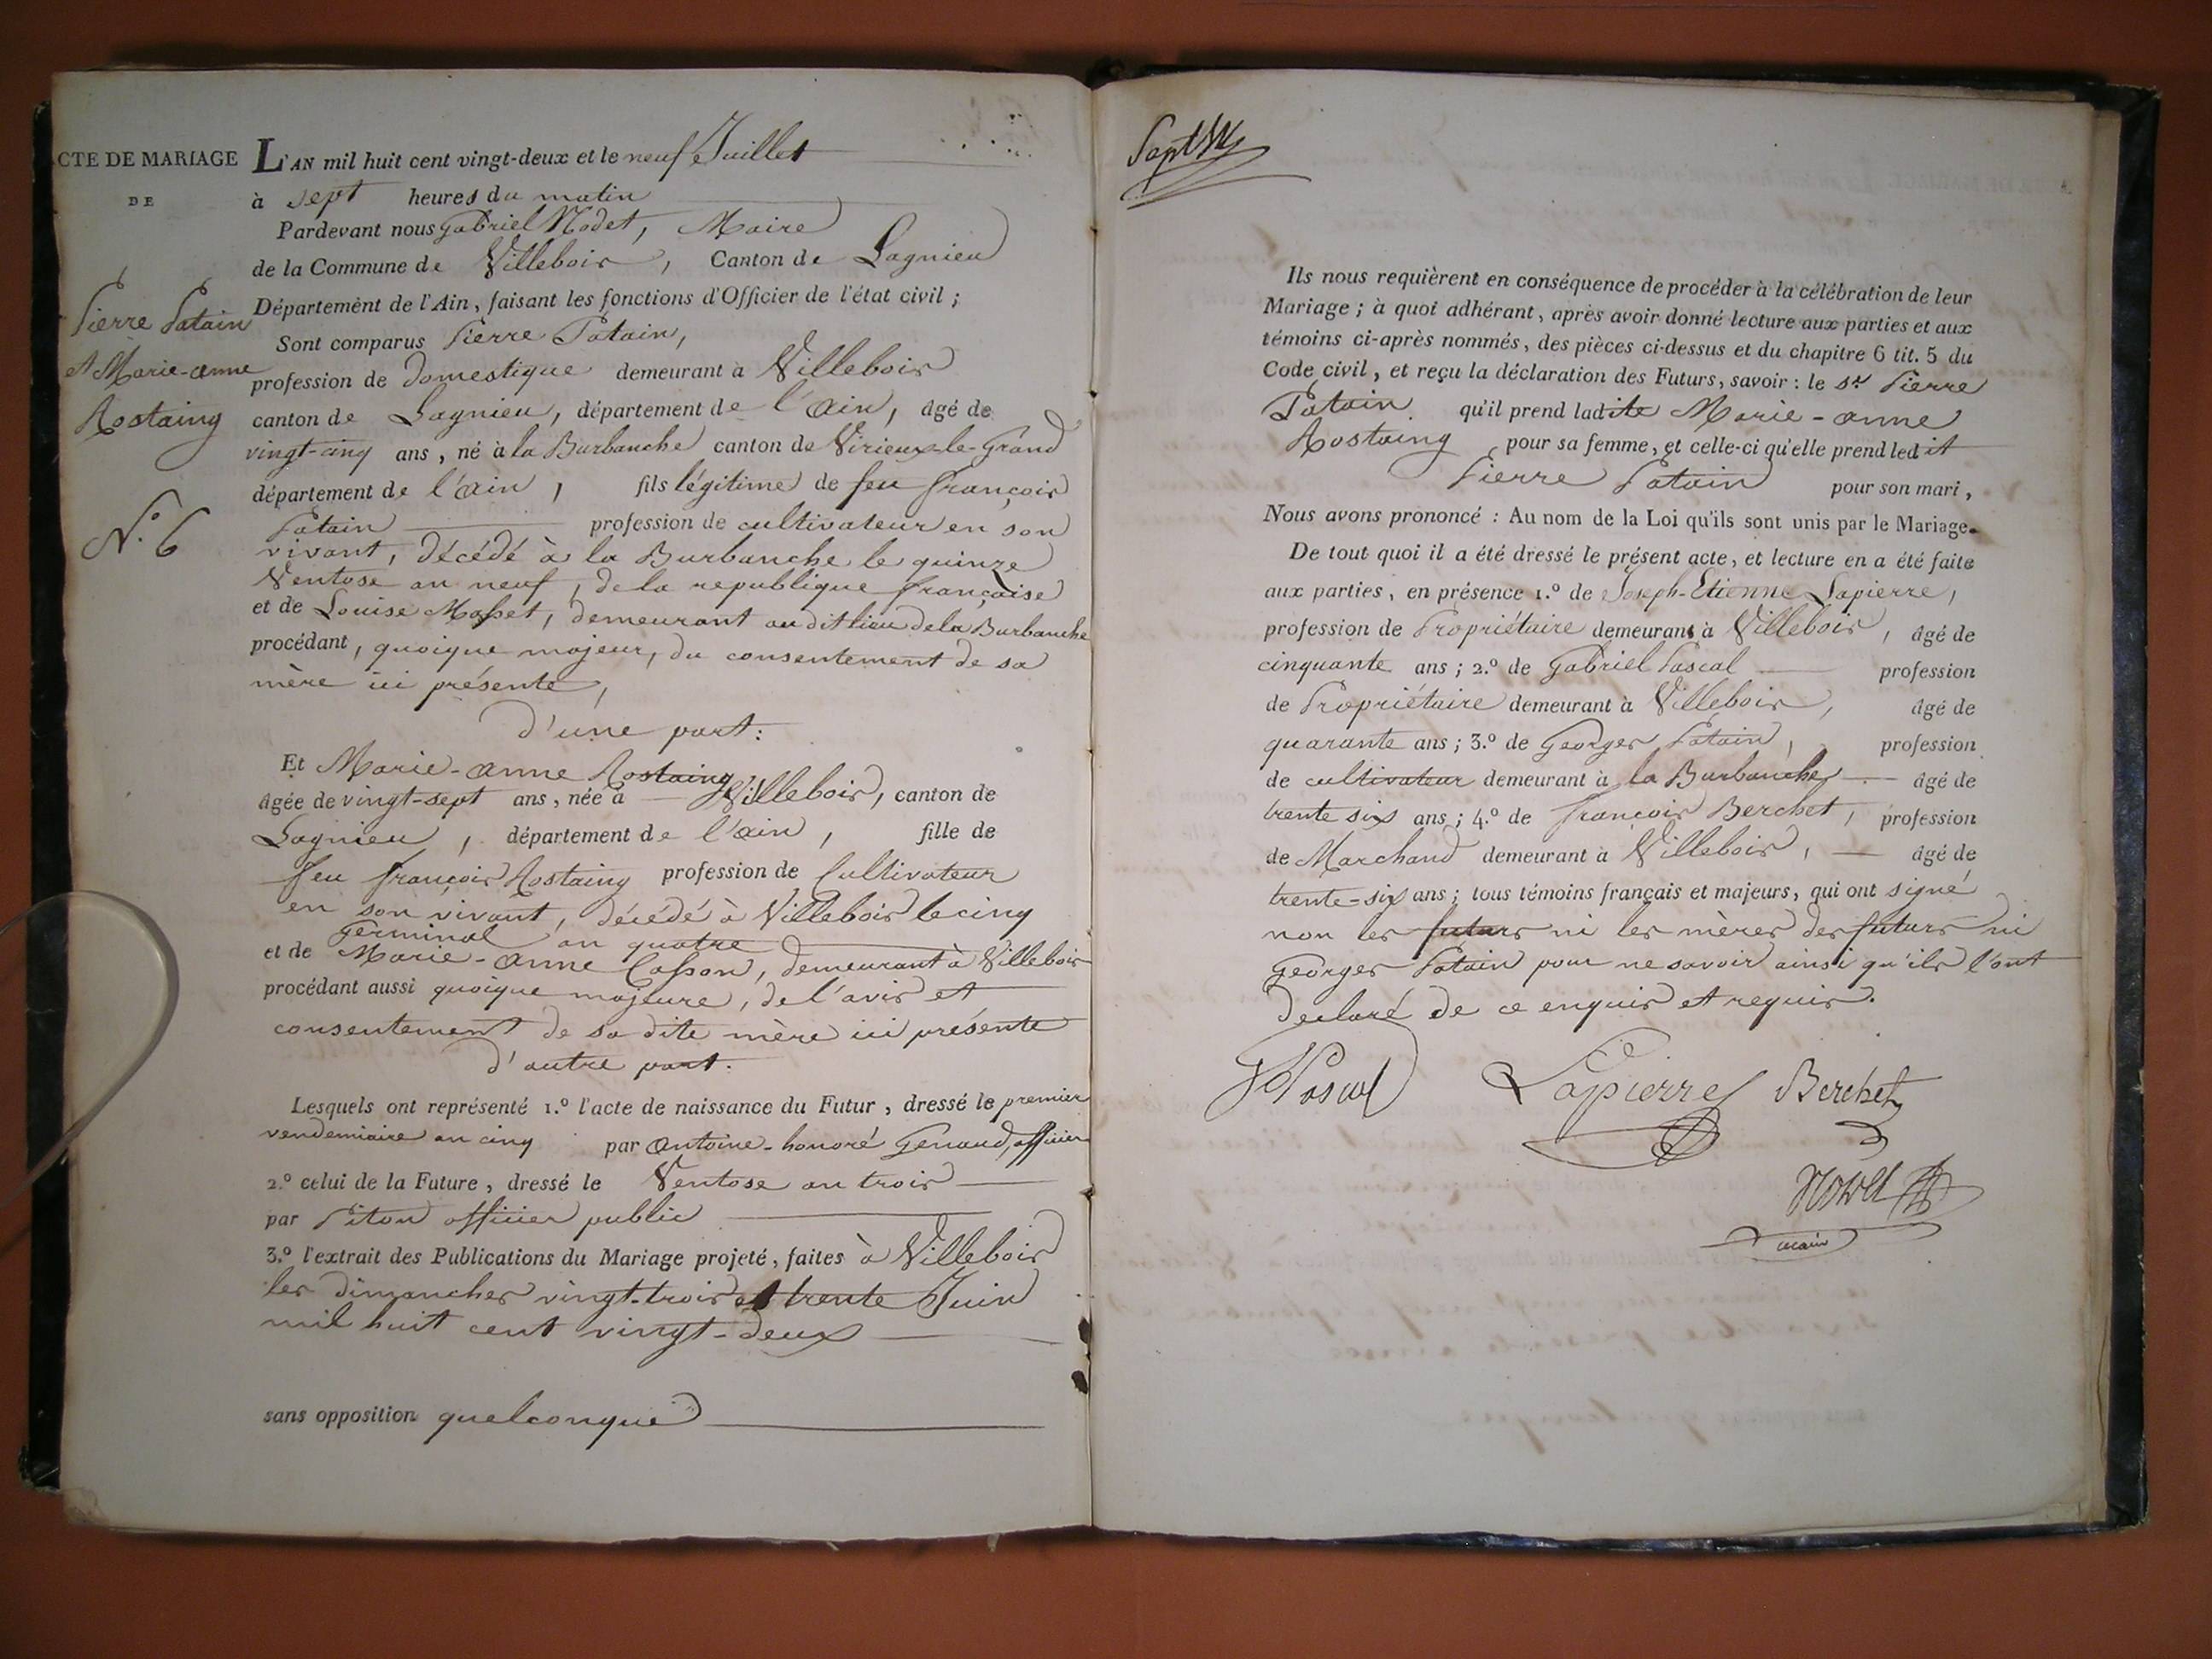 ACTE DE MARIAGE
DE
Pierre Patain
et Marie-anne
Rostaing
N.° 6
L'AN mil huit cent vingt-deux et le neuf Juillet
à sept heures du matin
Pardevant nous Gabriel Nodet, Maire
de la Commune de Villebois, Canton de Lagnieu
Département de l'Ain, faisant les fonctions d'Officier de l'état civil ;
Sont comparus Pierre Patain,
profession de Domestique demeurant à Villebois
canton de Lagnieu, département de l'ain, âgé de
vingt-cinq ans, né à la Burbanche canton de Virieux-le-Grand
département de l'ain, fils légitime de feu françois
Patain profession de cultivateur en son
vivant, décédé à la Burbanche le quinze
Ventose an neuf, de la republique française
et de Louise Masset, demeurant au dit lieu de la Burbanche
procédant, quoique majeur, du consentement de sa
mère ici présente,
d'une part :
Et Marie-anne Rostaing
âgée de vingt-sept ans, née à Villebois, canton de
Lagnieu, département de l'ain, fille de
feu françois Rostaing profession de Cultivateur
en son vivant, décédé à Villebois le cinq
Germinal an quatre
et de Marie-anne Casson, demeurant à Villebois
procédant aussi quoique majeure, de l'avis et
consentement de sa dite mère ici présente
d'autre part.
Lesquels ont représenté 1.° l'acte de naissance du Futur, dressé le premier
vendemiaire an cinq par antoine-honoré Genaud, officier
2.° celui de la Future, dressé le Ventose an trois
par Piton officier public
3.° l'extrait des Publications du Mariage projeté, faites à Villebois
les dimanches vingt-trois et trente Juin
mil huit cent vingt-deux
sans opposition quelconque
Ils nous requièrent en conséquence de procéder à la célébration de leur
Mariage ; à quoi adhérant, après avoir donné lecture aux parties et aux
témoins ci-après nommés, des pièces ci-dessus et du chapitre 6 tit. 5 du
Code civil, et reçu la déclaration des Futurs, savoir : le sr Pierre
Patain qu'il prend ladite Marie-anne
Rostaing pour sa femme, et celle-ci qu'elle prend ledit
Pierre Patain pour son mari,
Nous avons prononcé : Au nom de la Loi qu'ils sont unis par le Mariage.
De tout quoi il a été dressé le présent acte, et lecture en a été faite
aux parties, en présence 1.° de Joseph-Etienne Lapierre,
profession de Propriétaire demeurant à Villebois, âgé de
cinquante ans ; 2.° de Gabriel Pascal profession
de Propriétaire demeurant à Villebois, âgé de
quarante ans ; 3.° de Georges Patain, profession
de cultivateur demeurant à la Burbanche âgé de
trente six ans ; 4.° de françois Berchet, profession
de Marchand demeurant à Villebois, âgé de
trente-six ans ; tous témoins français et majeurs, qui ont signé
non les futurs ni les mères des futurs ni
Georges Patain pour ne savoir ainsi qu'ils l'ont
declaré de ce enquis et requis.
Pascal Lapierre Berchet
Nodet
maire